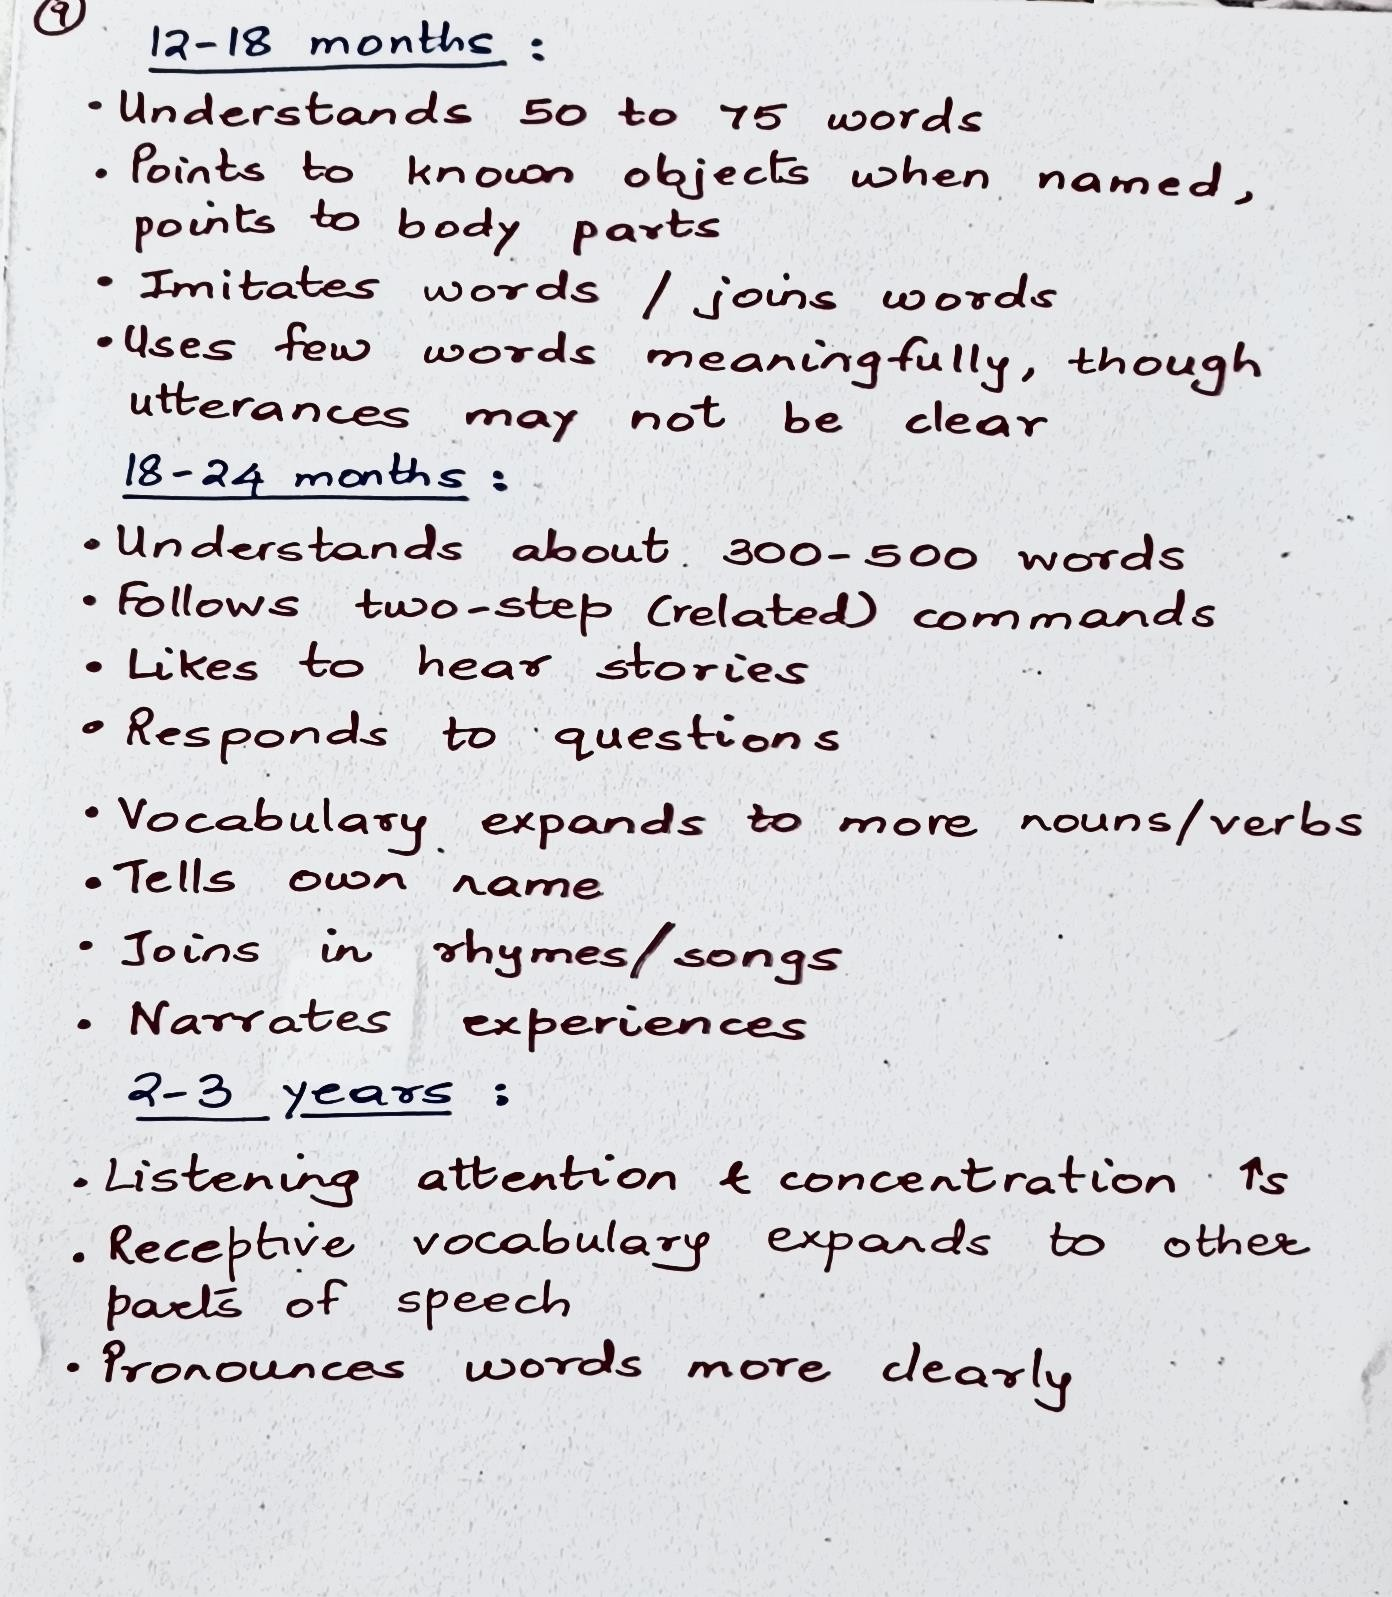 9
12-18 months :
• Understands 50 to 75 words
• Points to known objects when named,
points to body parts
• Imitates words / joins words
• Uses few words meaningfully, though
utterances may not be clear
18-24 months :
• Understands about 300-500 words
• Follows two-step (related) commands
• Likes to hear stories
• Responds to questions
• Vocabulary expands to more nouns/verbs
• Tells own name
• Joins in rhymes/songs
• Narrates experiences
2-3 years :
• Listening attention & concentration ↑s
• Receptive vocabulary expands to other
parts of speech
• Pronounces words more clearly